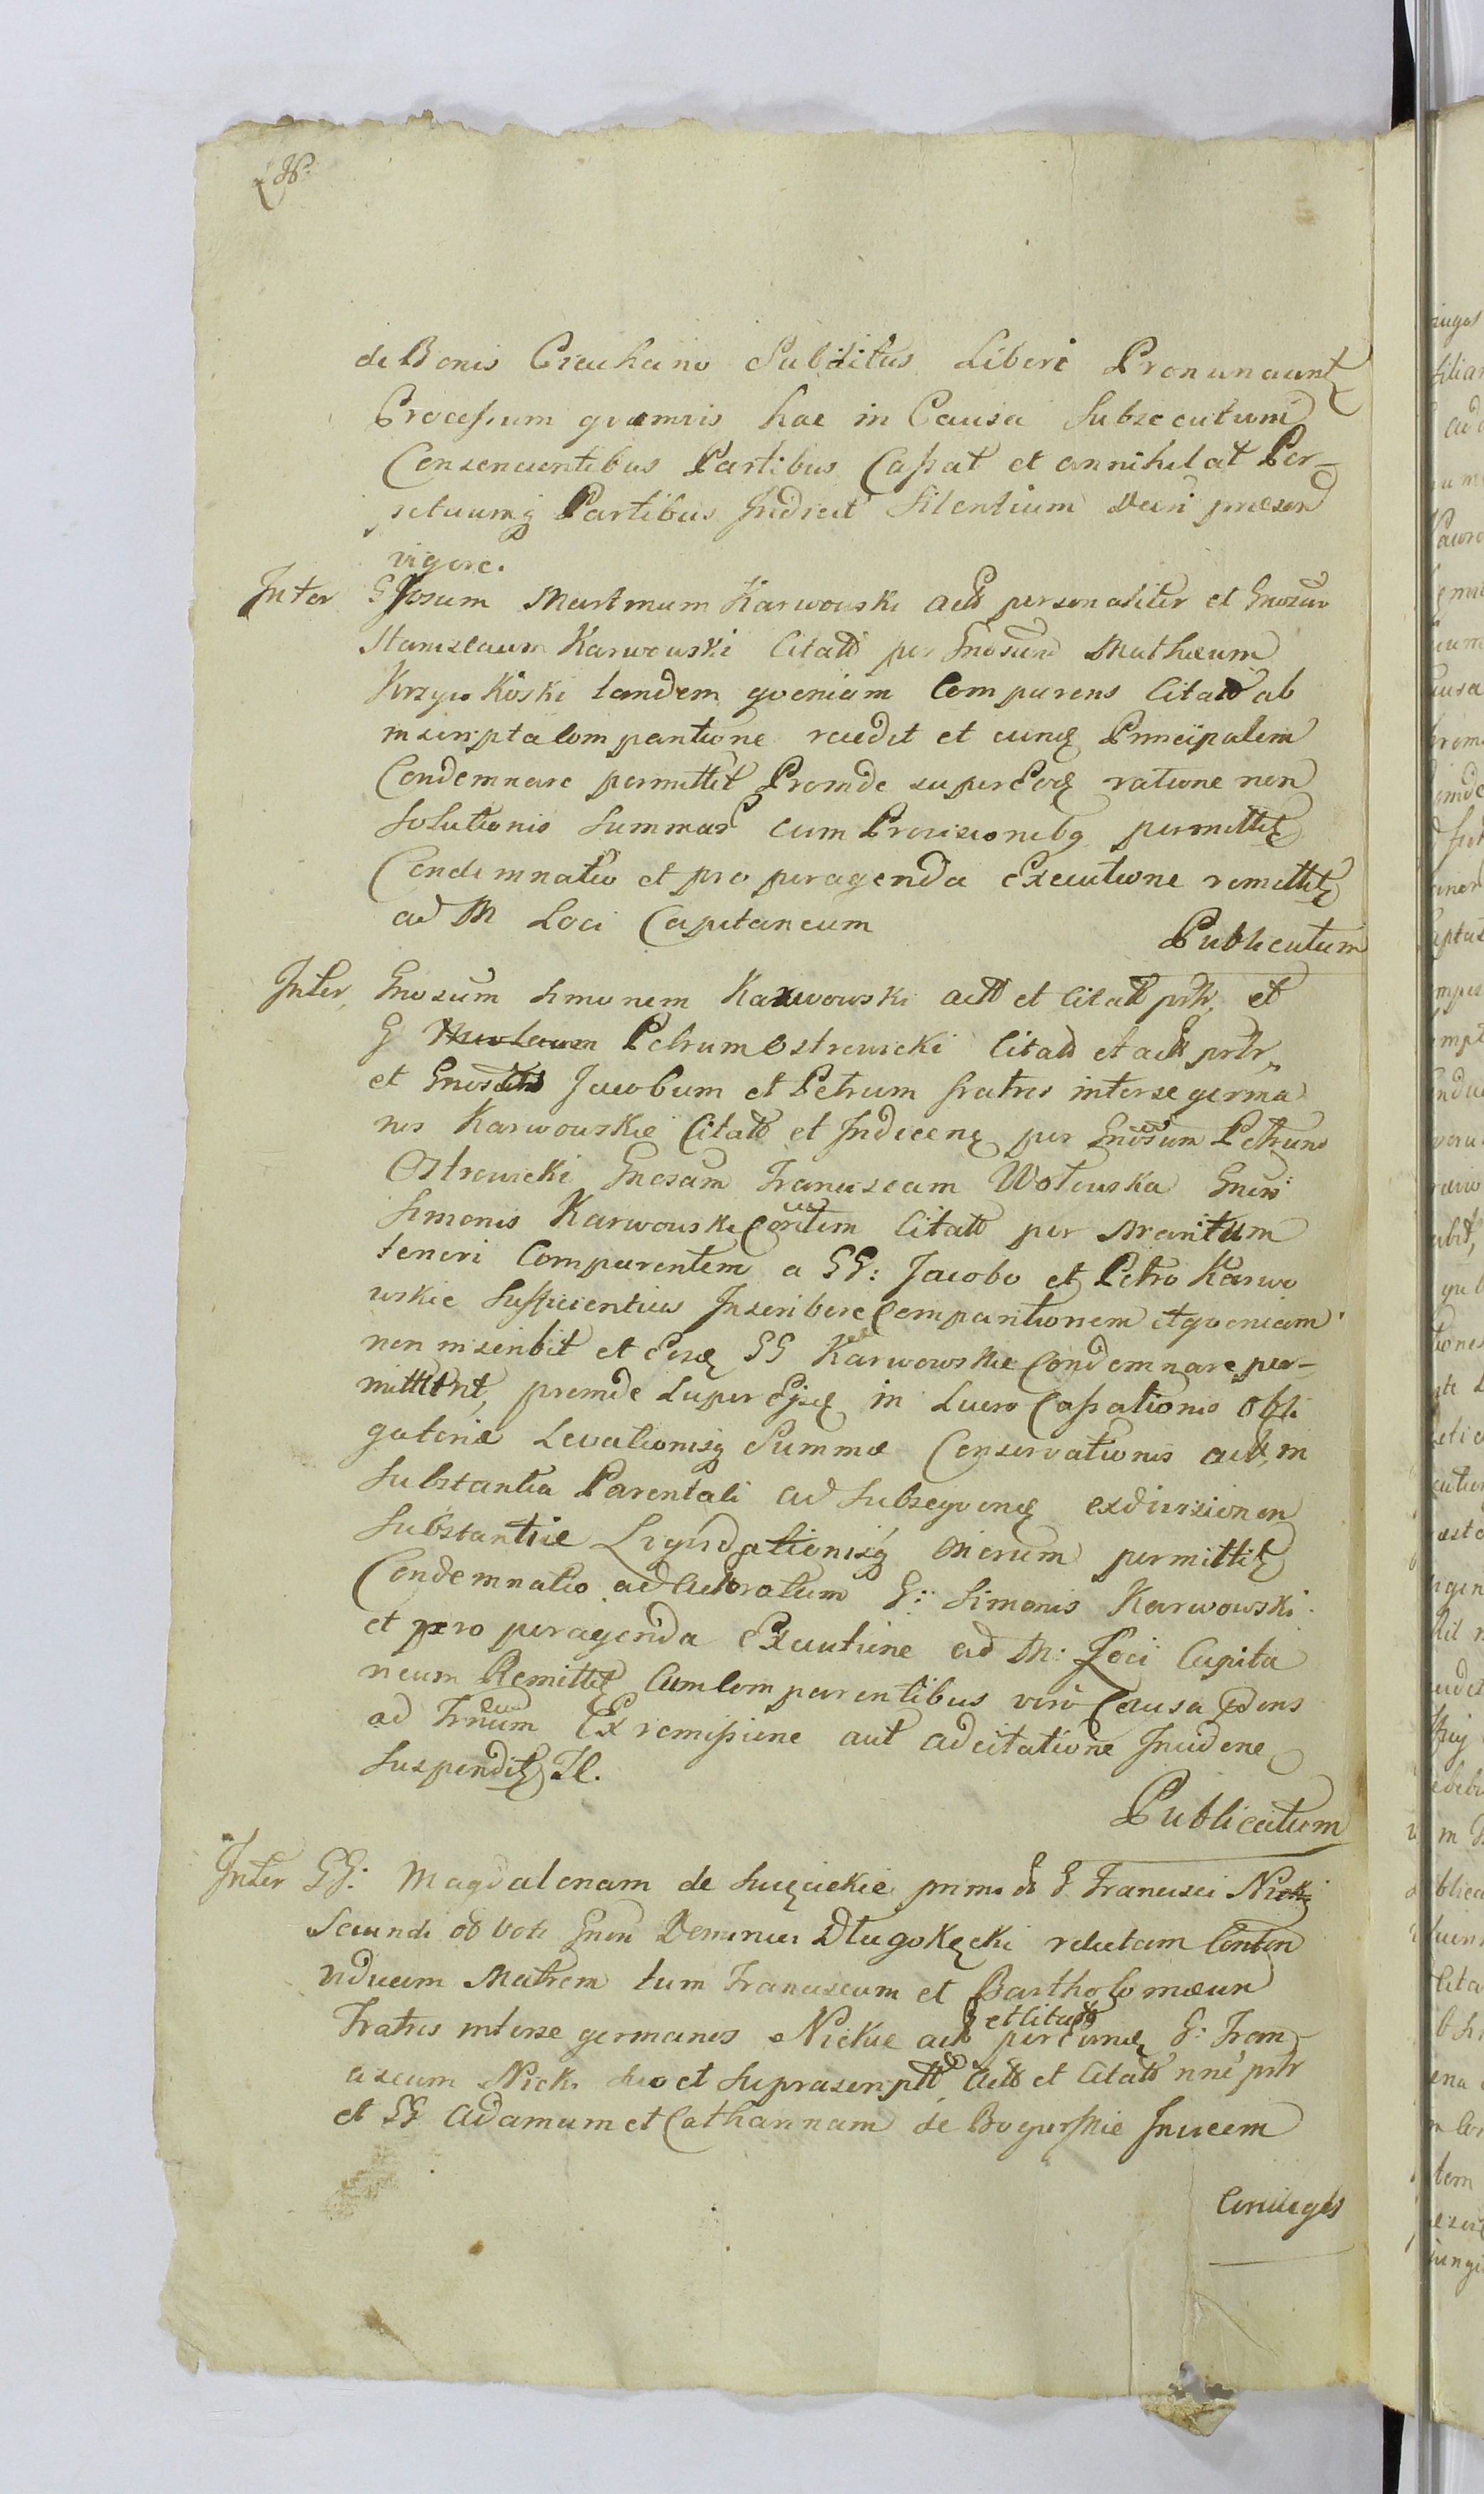 de Bonis Subditus Liberi Pronunciantr
Processum quemvis hac in Causa Subsecutum
Consencientibus Partibus Cassat et annihilat Per-
petuumq Partibus Indicit Silentium præsen
vigore.
Inter Gnosum Martinum Karwowski actt personaliter et Gnosum
Stanislaum Karwowski Citatt per Gnosum Mathæum
tandem qvoniam Comparens Citatt ab
inscripta Comparitione recedit et eund Principalem
Condemnare permittit Proinde super Eod ratione non
Solutionis Summar cum Provisionibq permittitr
Condemnatio et pro peragenda Executione remittitr
ad M Loci Capitaneum
Publicatum
Inter Gnosum Simonem Karwowski actt et Citatt prtr et
G Petrum Ostrowicki Citatt et actt prtr
et Gnosos Jacobum et Petrum fratres inter se germa
nos Karwowskie Citatt et Indicen per Gnosum Petrum
Ostrowicki Gnosam Franciscam Wolowska Gnosi
Simonis Karwowski Contem Citatt per Maritum
teneri Comparentem a GG: Jacobo et Petro Karwo
wskie Sufficientius Inscribere Comparitionem et qvoniam
non inscribit et Eosd GG Karwowskie Condemnare per-
mittunt, proinde Super Ejsd in Lucro Cassationis obli
gatoriæ Levationisq Summæ Conservationis actt in
Substantia Parentali ad Subsequen exdivisionem
Substantiæ Liqvidationisq onerum permittitr
Condemnatio ad G: Simonis Karwowski
et pro peragenda Executione ad M: Loci Capita
neum Remittitr Cum Comparentibus vero Causa
ad Trnum Ex remissione aut adcitatione Inciden
Suspenditr
Publicatum
Inter GG: Magdalenam de primo G Francisci Nicki
Secundi voti Gnosi Długokęcki relictam
viduam Matrem tum Franciscum et Bartholomæum
Fratres inter se germanos Nickie actt et Citatt per eund G: Fran
ciscum Nicki suo et suprascriptt actt et Citatt nne prtr
et GG Adamum et Catharinam de Invicem
Conjuges